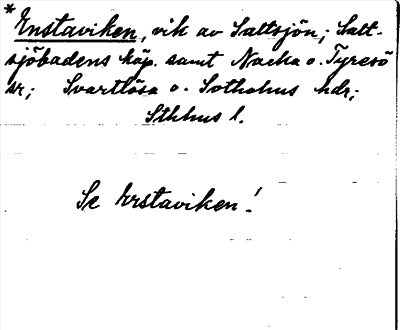 * Enstaviken, vik av Saltsjön; Salt-
sjöbadens köp. samt Nacka o. Tyresö
sr; Svartlösa o. Sotholms hdr;
Sthlms l.
Se Erstaviken!